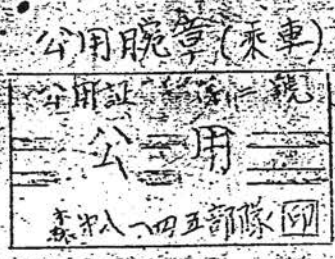 公用腕章(乗車)
公用証 號
公用
森第八一四五部隊 印